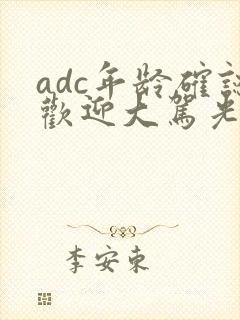 adc年龄確認
歡迎大駕光
李安東